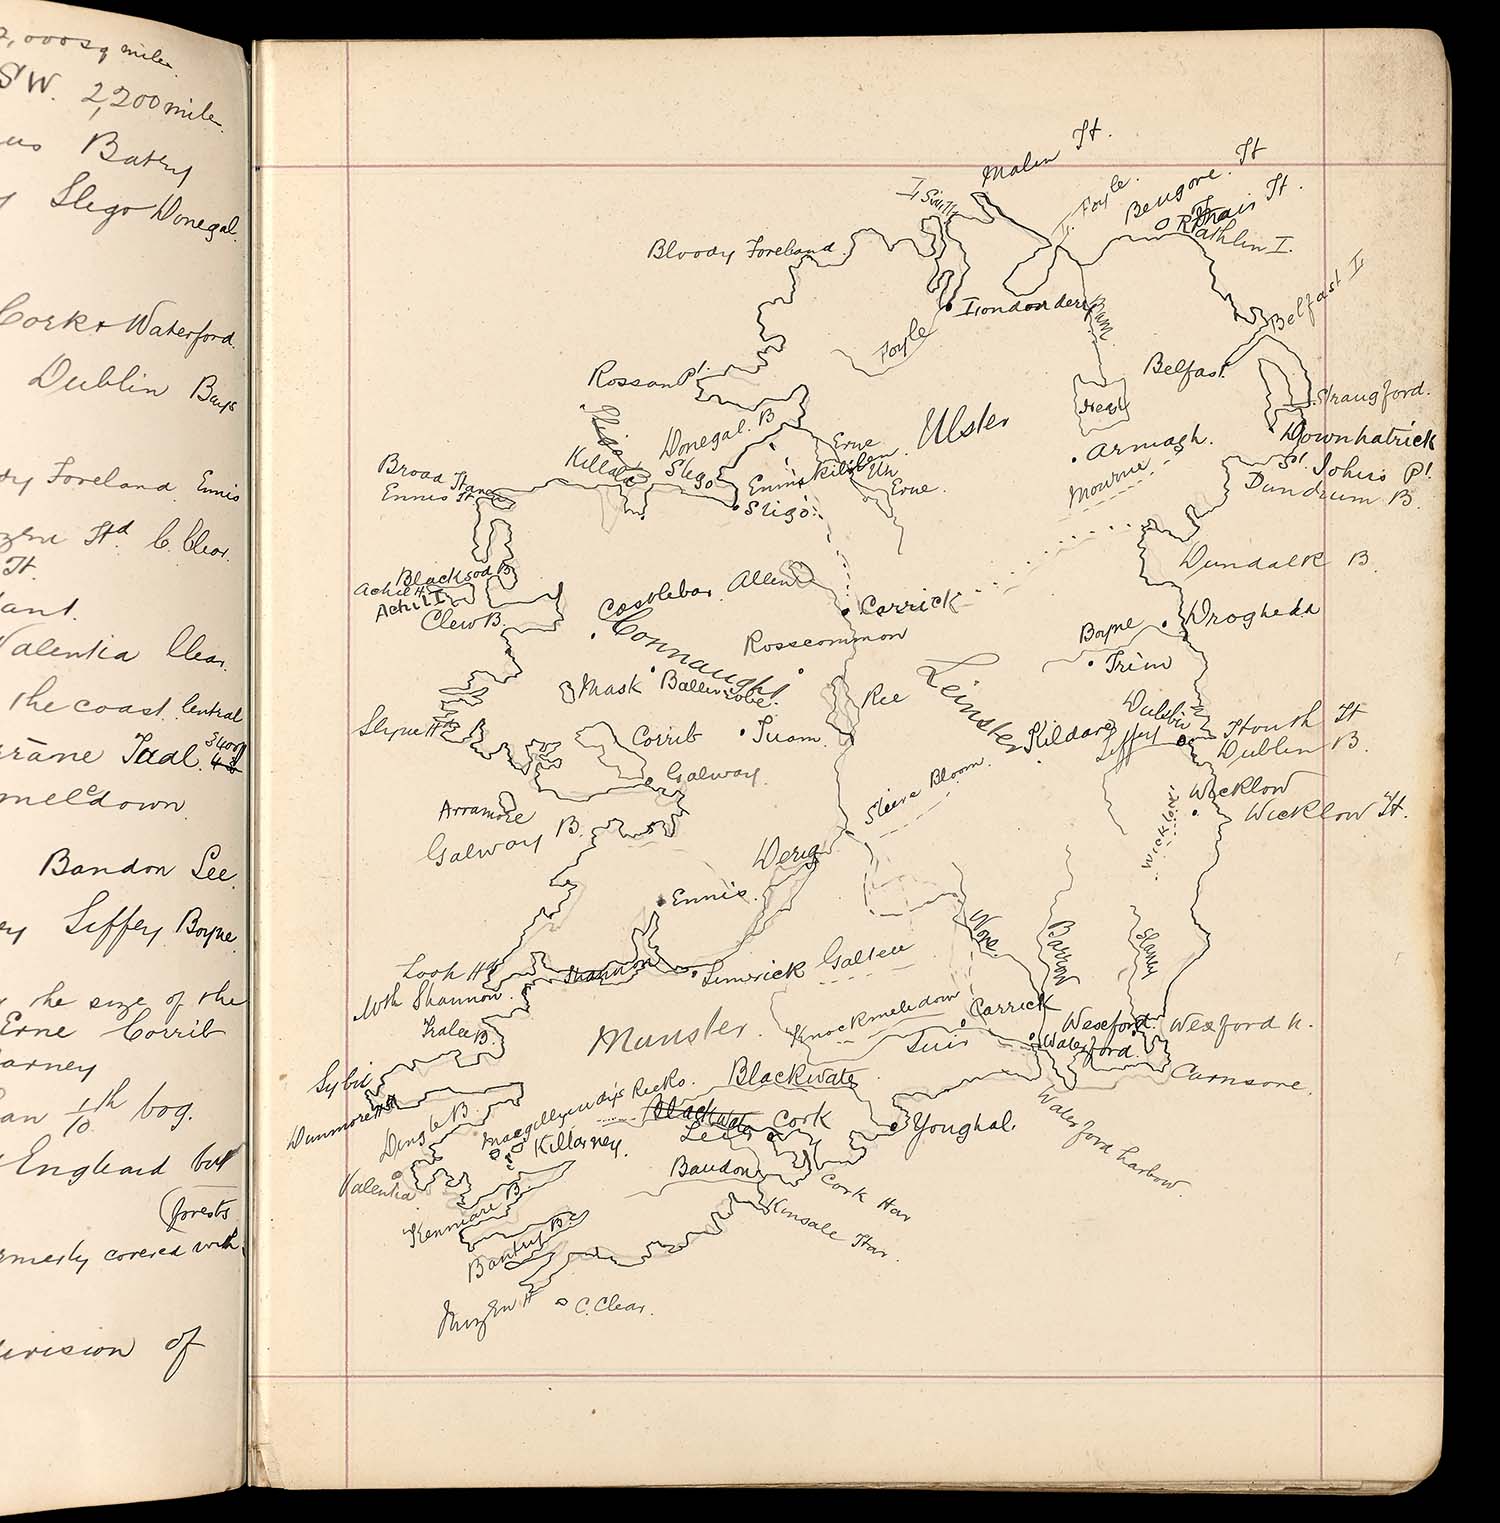 2,000 sq miles.
SW. 2,200 miles.
Batry
Sligo Donegal.
Cork & Waterford.
Dublin Bays
Foreland Ennis
Hd. C. Clear.
Ht.
Valentia Clear.
the coast. Central
Tral. 3400
Bandon Lee.
Liffey Boyne.
the size of the
Erne Corrib
1/10th bog.
England but
(forests
covered with
division of
Malin Ht.
L. Swilly
L. Foyle.
Bengore. Ht
Fair Ht.
Rathlin I.
Bloody Foreland.
Londonderry
Bann.
Belfast L
Foyle
Rossan Pt.
Belfast.
Neagh
Strangford.
Donegal. B
Ulster
Erne
Downpatrick
Armagh.
Killala
Sligo
Enniskillen
Up
Erne.
St. Johns Pt.
Broad Haven
Ennis Ht.
Mourne
Dundrum B.
Sligo.
Dundalk B.
Blacksod B
Achil H.
Achil I
Clew B.
Castlebar
Allen
Carrick
Drogheda
Connaught
Roscommon
Boyne
Trim
Mask
Ballinrobe.
Leinster
Ree
Slyne Hd
Corrib
Tuam.
Kildare
Dublin
Liffey
Houth Ht
Dublin B.
Galway.
Sleeve Bloom.
Wicklow
Wicklow Ht.
Wicklow
Arramore
Galway B.
Derig
Ennis.
Nore.
Barrow
Slaney
Loop Hd
Shannon
Limerick
Galtee
Mth Shannon.
Munster.
Knockmeledown
Carrick
Wexford.
Wexford h.
Tralee B.
Suir
Waterford.
Sybil
Blackwater
Carnsore.
Dunmore Hd
Macgillycuddy's Reeks.
Blackwater
Cork
Waterford harbour.
Dingle B.
Killarney.
Lee
Youghal.
Valentia
Bandon
Cork Har
Kenmare B.
Kinsale Har.
Bantry B.
Mizen H
C. Clear.